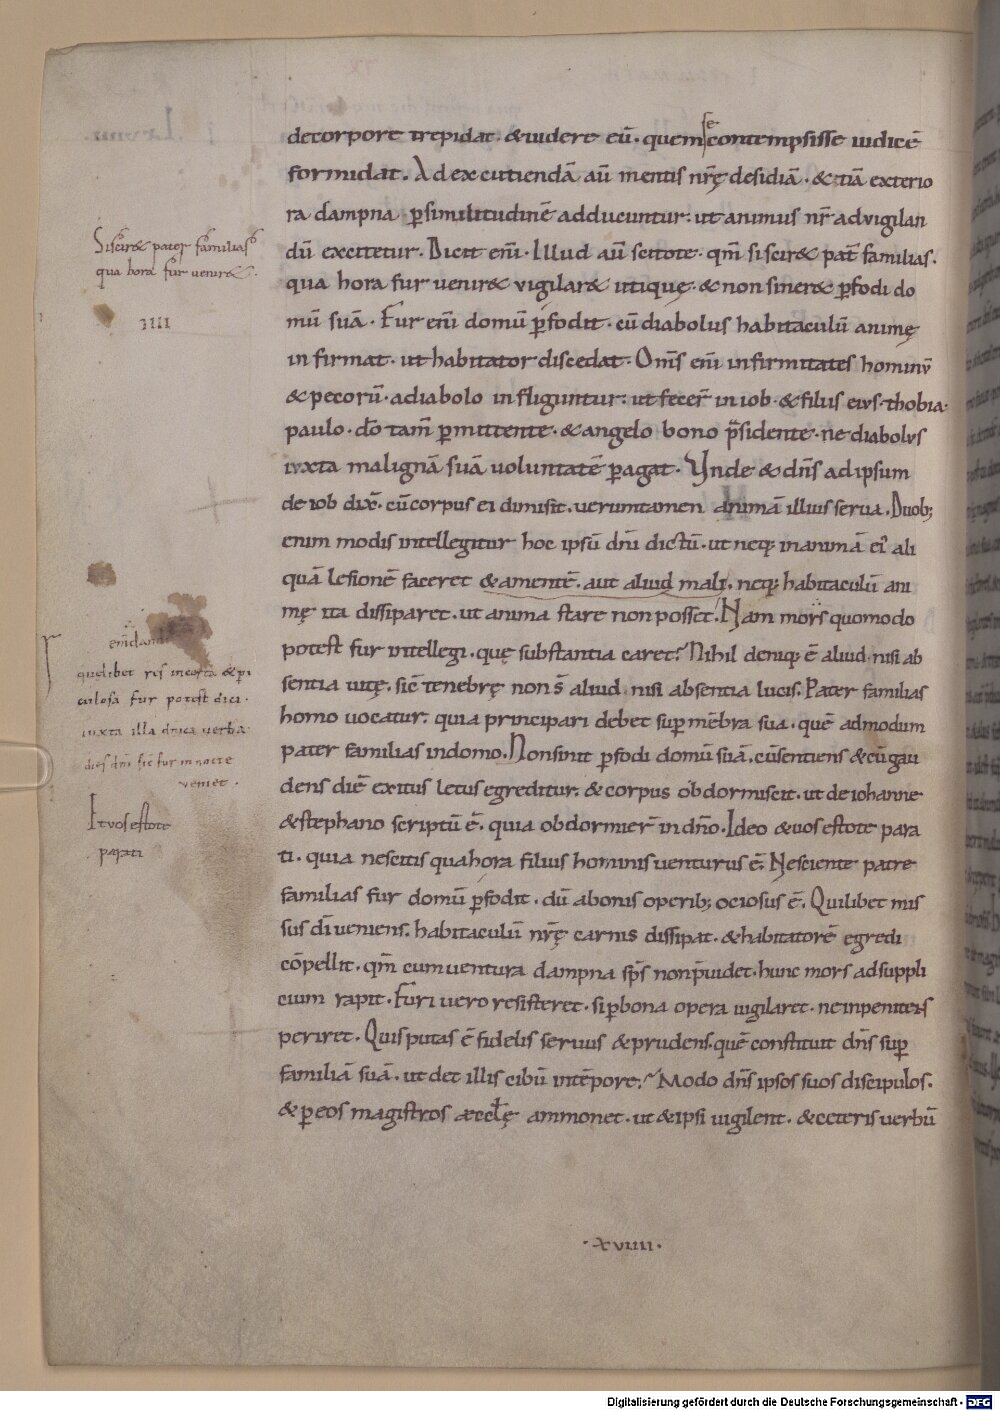 decorpore trepidat · & uidere eū · quem se contempsisse iudicē
formidat . Ad excutiendā aū mentis nr̄ę desidiā · & tiā exterio
ra dampna p̄ similitudinē adducuntur · ut animus nr̄ ad vigilan
dū excitetur . Dicit enī · Illud aū scitote · qm̄ si scir& pat̄ familias ·
qua hora fur uenir& vigilar& utique · & non siner& p̄fodi do
mū suā · Fur enī domū p̄fodit · cū diabolus habitaculū animę
infirmat · ut habitator discedat · Om̄s enī infirmitates hominū
& pecorū · a diabolo infliguntur · ut fecer̄ in iob · & filus eius · thobia ·
paulo · dō tam̄ p̄mittente · & angelo bono p̄sidente · ne diabolus
iuxta malignā suā uoluntatē p̄agat · Vnde & dn̄s ad ipsum
de iob dix̄ · cū corpus ei dimisit · uerumtamen animā illius serua . Duob;
enim modis intellegitur hoc ipsū dn̄i dictū · ut neq; in animā ei' ali
quā lesionē faceret & amentē · aut aliud mali · neq; habitaculū ani
mę ita dissiparet · ut anima stare non posset . Nam mors quomodo
potest fur intellegi · quę substantia caret? Nihil deniq; ē aliud · nisi ab
sentia uitę · sic̄ tenebrę non s̄ aliud · nisi absentia lucis . Pater familias
homo uocatur · quia principari debet sup̄ mēbra sua · quē admodum
pater familias in domo . Non sinit p̄fodi domū suā · cū sentiens & cū gau
dens diē exitus letus egreditur · & corpus obdormiscit · ut de iohanne
& stephano scriptū ē · quia obdormier̄ in dn̄o . Ideo & uos estote para
ti · quia nescitis qua hora filius hominis uenturus ē · Nesciente patre
familias fur domū p̄fodit · dū a bonis operib; ociosus ē . Quilibet mis
sus dī ueniens · habitaculū nr̄ę carnis dissipat · & habitatorē egredi
cōpellit · qm̄ cum uentura dampna sp̄s non p̄uidet · hunc mors ad suppli
cium rapit . Furi uero resisteret · si p̄ bona opera uigilaret · ne inpenitens
periret . Quis putas ē fidelis seruus & prudens · quē constituit dn̄s sup̄
familiā suā · ut det illis cibū in tēpore? Modo dn̄s ipsos suos discipulos ·
& p̄ eos magistros æccl̄ę ammonet · ut & ipsi uigilent · & ceteris uerbū
Si scir& pater familias
qua hora fur uenir& ·
IIII
quelibet res incerta & pi
culosa fur potest dici ·
iuxta illa dn̄ica uerba
dies dn̄i sic̄ fur in nocte
veniet ·
It uos estote
parati
· xviiii ·
Digitalisierung gefördert durch die Deutsche Forschungsgemeinschaft - DFG